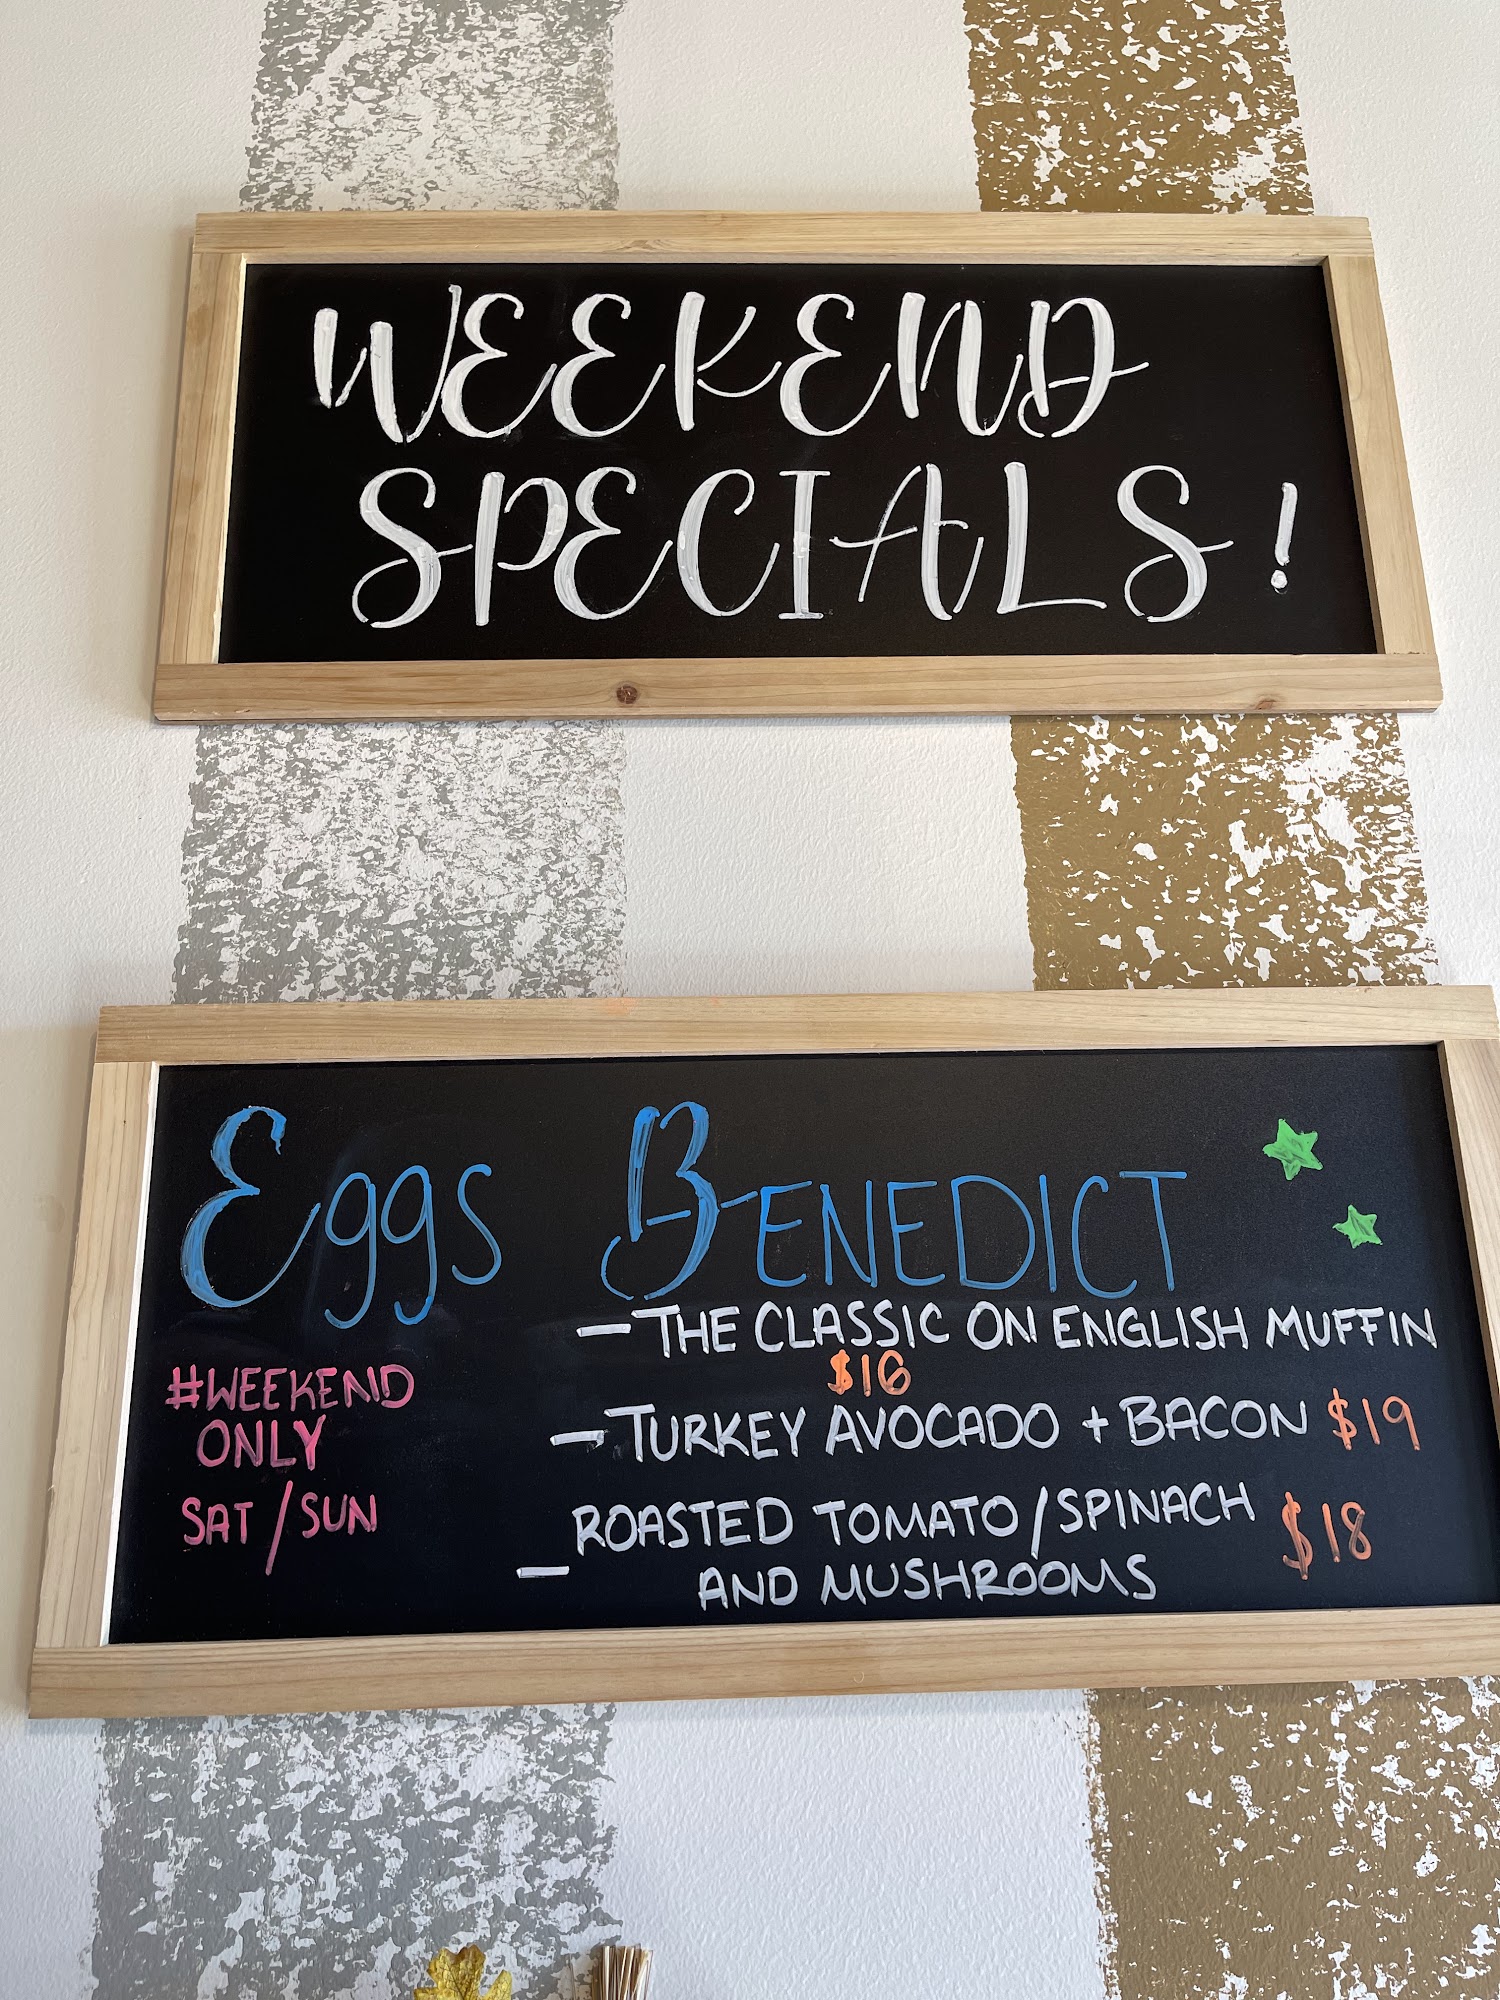 WEEKEND
SPECIALS!
Eggs BENEDICT
- THE CLASSIC ON ENGLISH MUFFIN
$16
- TURKEY AVOCADO + BACON $19
- ROASTED TOMATO/SPINACH $18
AND MUSHROOMS
#WEEKEND
ONLY
SAT/SUN